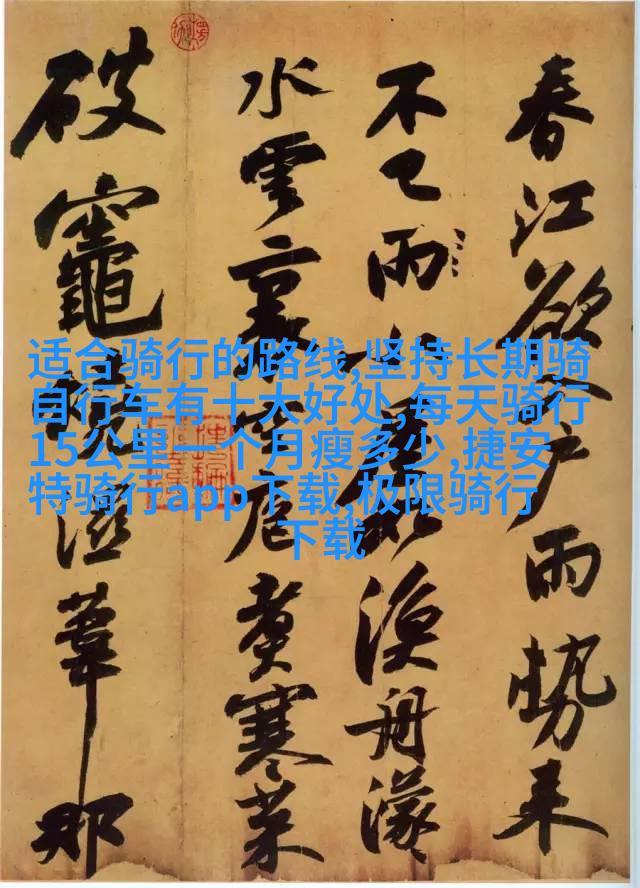 春江欲入户雨势来
不已雨小屋如渔舟濛
水雲裏空庖煮寒菜
破竈燒濕葦那
适合骑行的路线,坚持长期骑
自行车有十大好处,每天骑行
15公里一个月瘦多少,捷安
特骑行app下载,极限骑行
下载